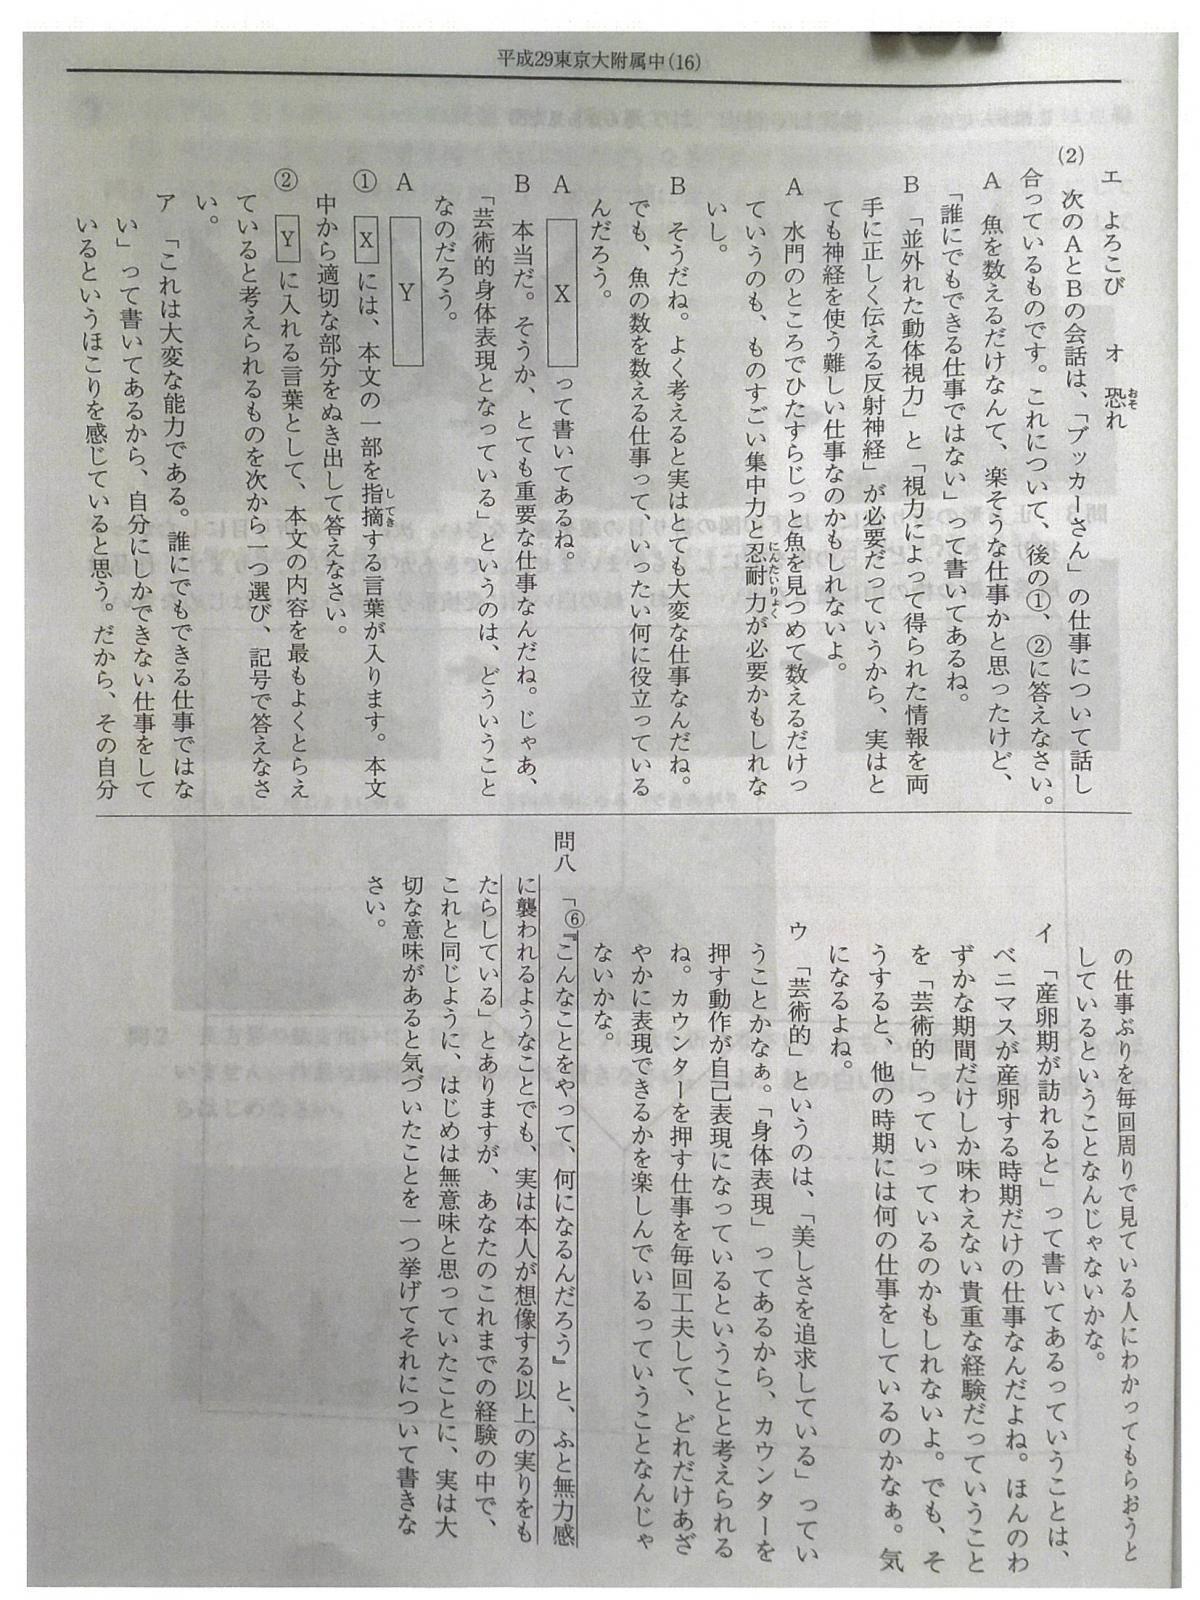 平成29東京大附属中(16)
エ　よろこび　オ　恐れ
おそ
(2)　次のAとBの会話は、「ブッカーさん」の仕事について話し
合っているものです。これについて、後の①、②に答えなさい。
A　魚を数えるだけなんて、楽そうな仕事かと思ったけど、
「誰にでもできる仕事ではない」って書いてあるね。
B　「並外れた動体視力」と「視力によって得られた情報を両
手に正しく伝える反射神経」が必要だっていうから、実はと
ても神経を使う難しい仕事なのかもしれないよ。
A　水門のところでひたすらじっと魚を見つめて数えるだけっ
ていうのも、ものすごい集中力と忍耐力が必要かもしれな
にんたいりょく
いし。
B　そうだね。よく考えると実はとても大変な仕事なんだね。
でも、魚の数を数える仕事って、いったい何に役立っている
んだろう。
A　X　って書いてあるね。
B　本当だ。そうか、とても重要な仕事なんだね。じゃあ、
「芸術的身体表現となっている」というのは、どういうこと
なのだろう。
A　Y
①　X　には、本文の一部を指摘する言葉が入ります。本文
してき
中から適切な部分をぬき出して答えなさい。
②　Y　に入れる言葉として、本文の内容を最もよくとらえ
ていると考えられるものを次から一つ選び、記号で答えなさ
い。
ア　「これは大変な能力である。誰にでもできる仕事ではな
い」って書いてあるから、自分にしかできない仕事をして
いるというほこりを感じていると思う。だから、その自分
の仕事ぶりを毎回周りで見ている人にわかってもらおうと
しているということなんじゃないかな。
イ　「産卵期が訪れると」って書いてあるっていうことは、
ベニマスが産卵する時期だけの仕事なんだよね。ほんのわ
ずかな期間だけしか味わえない貴重な経験だっていうこと
を「芸術的」っていっているのかもしれないよ。でも、そ
うすると、他の時期には何の仕事をしているのかなぁ。気
になるよね。
ウ　「芸術的」というのは、「美しさを追求している」ってい
うことかなぁ。「身体表現」ってあるから、カウンターを
押す動作が自己表現になっているということと考えられる
ね。カウンターを押す仕事を毎回工夫して、どれだけあざ
やかに表現できるかを楽しんでいるっていうことなんじゃ
ないかな。
問八　「⑥『こんなことをやって、何になるんだろう』と、ふと無力感
に襲われるようなことでも、実は本人が想像する以上の実りをも
たらしている」とありますが、あなたのこれまでの経験の中で、
これと同じように、はじめは無意味と思っていたことに、実は大
切な意味があると気づいたことを一つ挙げてそれについて書きな
さい。